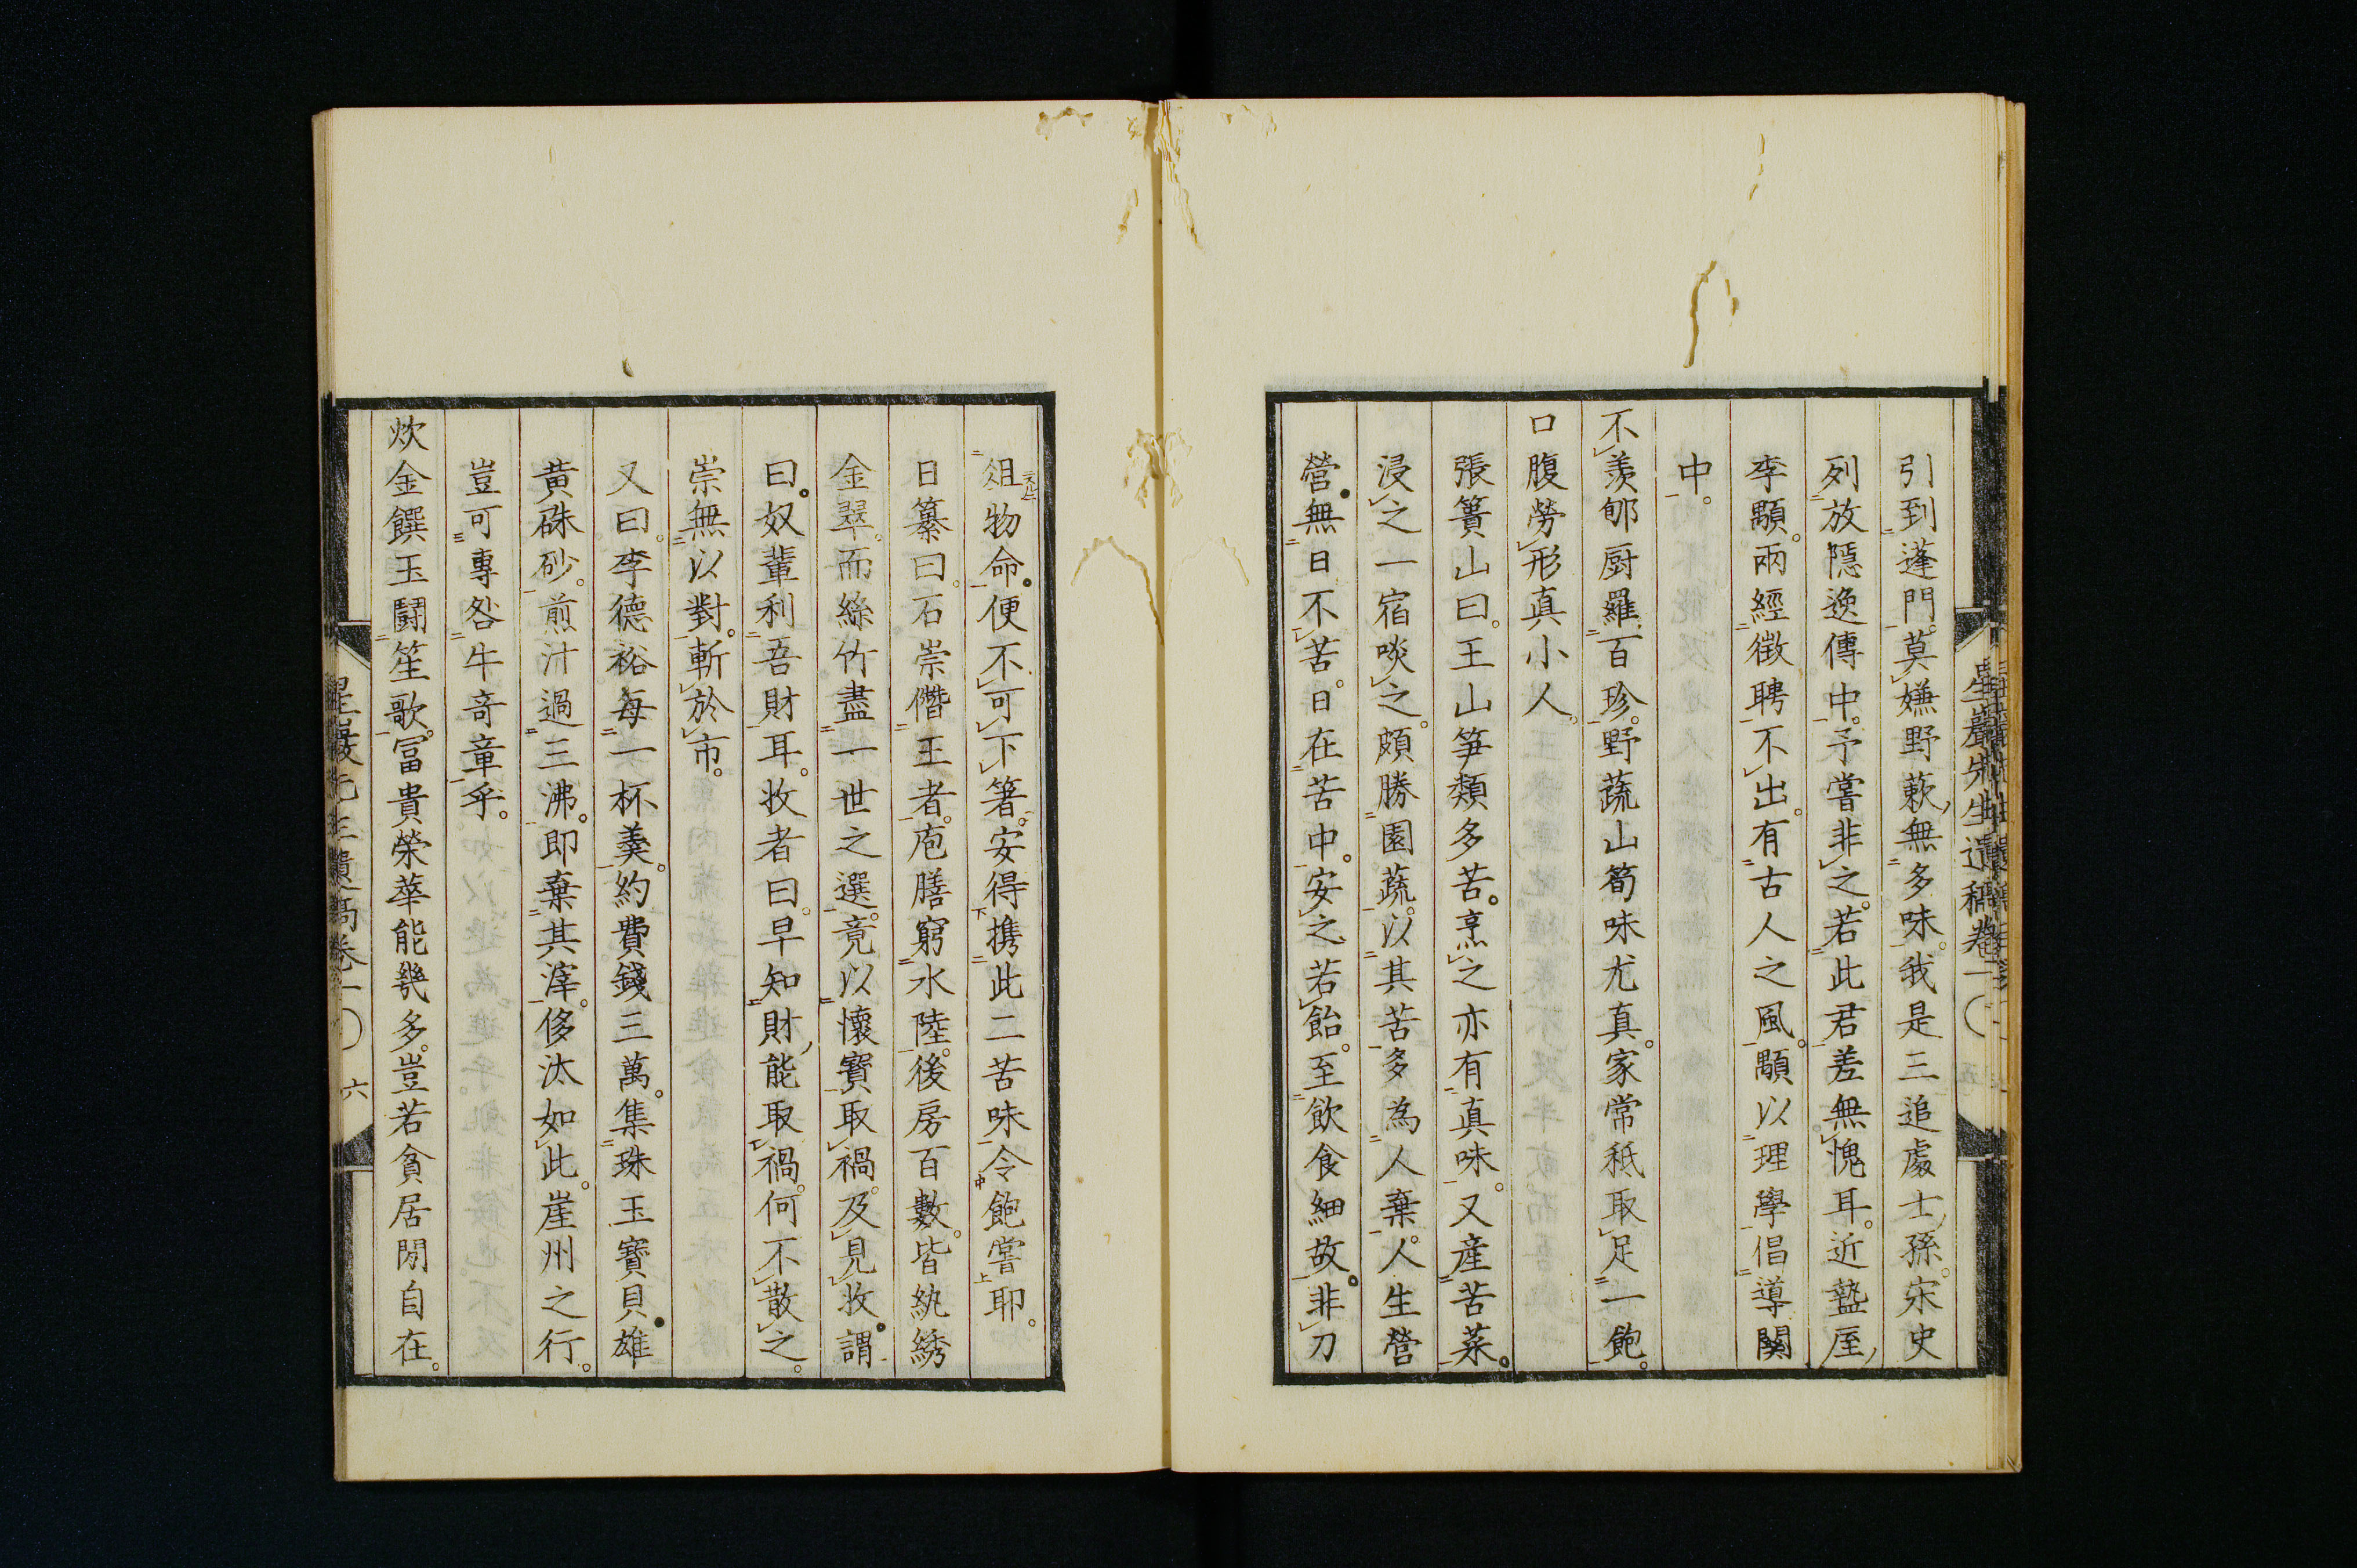 引到蓬門。莫嫌野蔌無多味。我是三追處士孫。宋史
列放隱逸傳中。予嘗非之。若此君差無愧耳。近盩厔
李顒。兩經徵聘不出。有古人之風。顒以理學倡導關
中。
不羨郇厨羅百珍。野蔬山筍味尤真。家常秪取足一飽。
口腹勞形真小人。
張簣山曰。王山笋類多苦。烹之亦有真味。又産苦菜。
浸之一宿啖之。頗勝園蔬。以其苦多為人棄。人生營
營。無日不苦。日在苦中。安之若飴。至飲食細故。非刀
俎物命。便不可下箸。安得携此二苦味令飽嘗耶。
日纂曰。石崇僭王者。庖膳窮水陸。後房百數。皆紈綉
金翠。而絲竹盡一世之選。竟以懷寶取禍。及見收。謂
曰。奴輩利吾財耳。收者曰。早知財能取禍。何不散之。
崇無以對。斬於市。
又曰。李德裕每一杯羹。約費錢三萬。集珠玉寶貝。雄
黄硃砂。煎汁過三沸。即棄其滓。侈汰如此。崖州之行。
豈可專咎牛奇章乎。
炊金饌玉鬪笙歌。冨貴榮華能幾多。豈若貧居閒自在。
星巖先生遺稿卷一 六